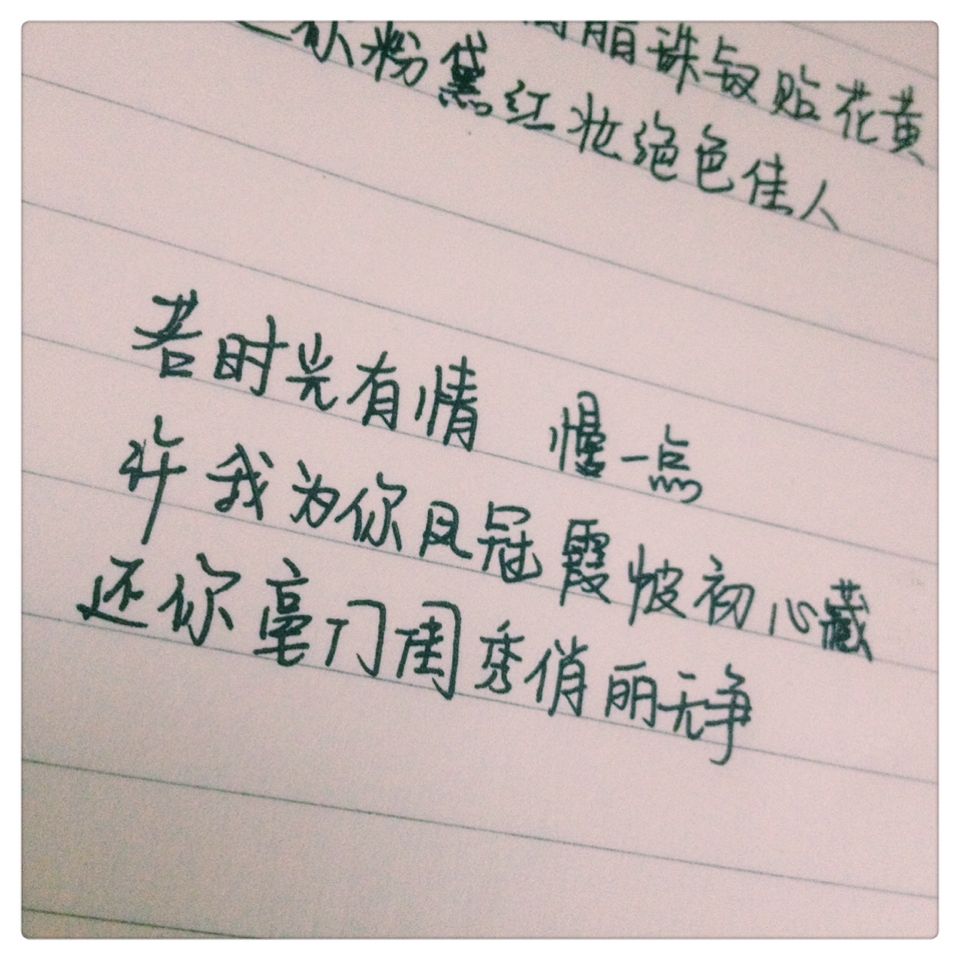 脂珠钗贴花黄
你粉黛红妆绝色佳人
若时光有情 慢一点
许我为你凤冠霞帔初心藏
还你毫门闺秀俏丽无争